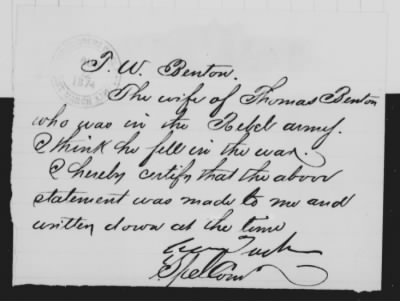 1874
T. W. Benton.
The wife of Thomas Benton
who was in the Rebel army.
I think he fell in the war.
I hereby certify that the above
statement was made to me and
written down at the time
Spl Com